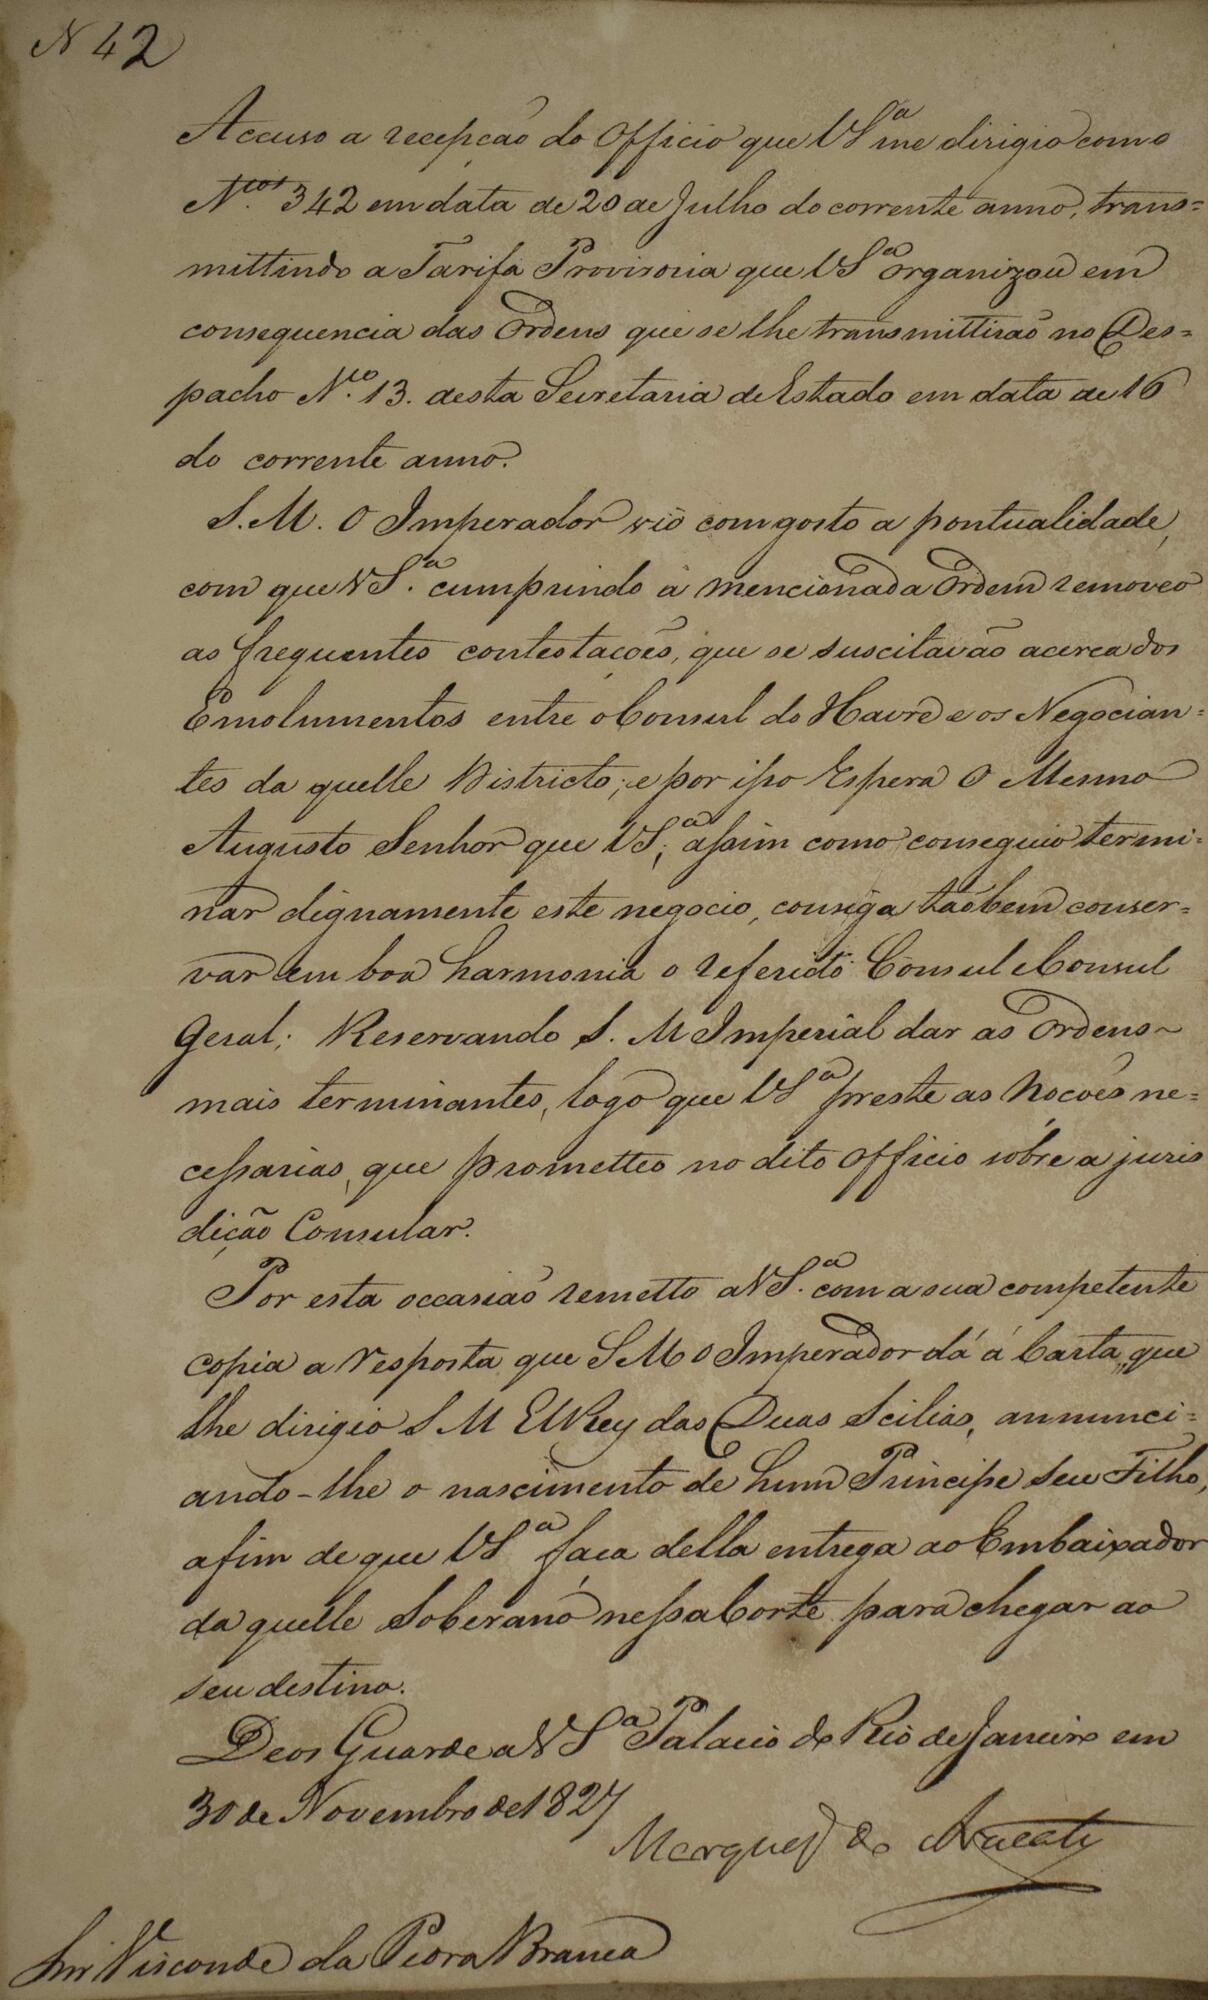 N 42
Accuso a recepção do Officio que VSª me dirigio com o
N.º 342 em data de 20 de Julho do corrente anno, trans=
mittindo a Tarifa Provisoria que VSª organizou em
consequencia das Ordens que se lhe transmittirão no Des=
pacho N.º 13. desta Secretaria de Estado em data de 16
do corrente anno.
S. M. O Imperador vio com gosto a pontualidade,
com que VS.ª cumprindo a mencionada Ordem removeo
as frequentes contestações, que se suscitavão acerca dos
Emolumentos entre o Consul do Havre e os Negocian=
tes da quelle Districto; e por isso Espera O Mesmo
Augusto Senhor que VSª; assim como conseguio termi=
nar dignamente este negocio, consiga tãobem conser=
var em boa harmonia o referido Consul e Consul
Geral; Reservando S. M Imperial dar as Ordens
mais terminantes, logo que VSª preste as Noçoẽs ne=
cessarias, que prometteo no dito Officio sôbre a juris
dição Consular.
Por esta occasião remetto a VS.ª com a sua competente
copia a resposta que S M O Imperador dá á Carta, que
lhe dirigio S M ElRey das Duas Scilias, annunci=
ando-lhe o nascimento de hum Principe seu Filho,
afim de que VSª faça della entrega ao Embaixador
da quelle Soberano nessa Corte para chegar ao
seu destino.
Deos Guarde a VSª Palacio do Rio de Janeiro em
30 de Novembro de 1827
Marquez de Aracaty
Snr Visconde da Pedra Branca